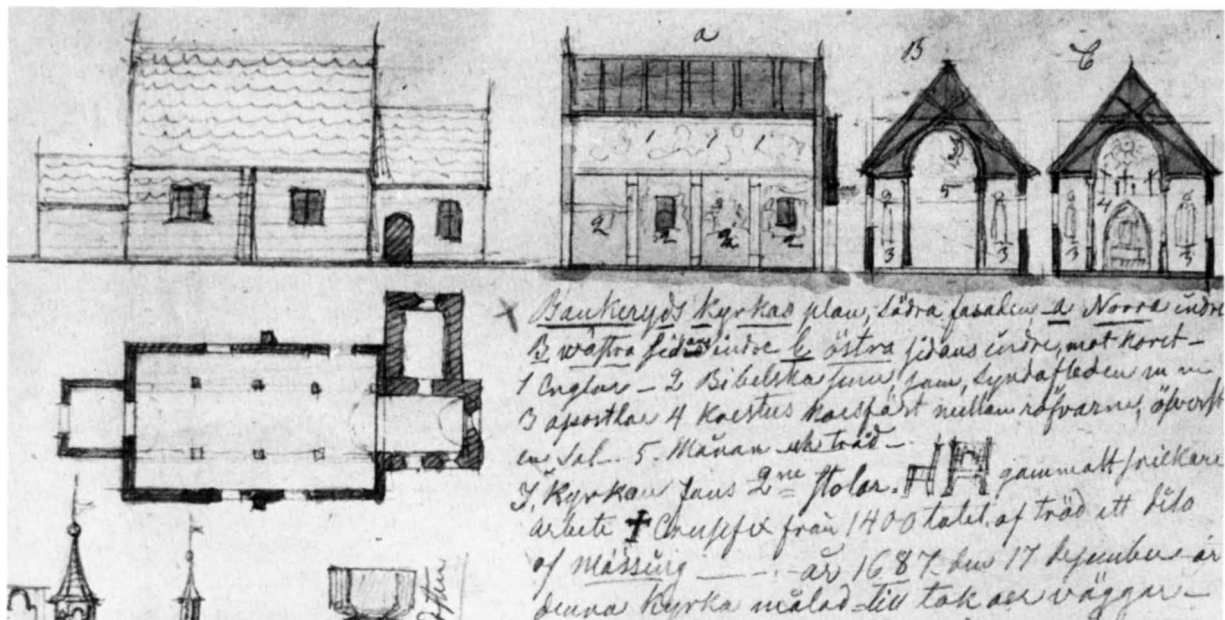 a
B
C
1 1 1
5
4
2 2 2 2
3 3
3 3
Bankeryds kyrkas plan, södra fasaden a Norra indre
B, wästra sidans indre C östra sidans indre, mot koret -
1 Englar - 2 Bibelska som, Syndafloden m m
3 apostlar 4 korsfäst mellan röfvarne, öfverst
en Sol - 5. Månan träd -
I, Kyrkan fans 2ne stolar. gammalt
arbete Crusifix från 1400 talet, af träd ett dito
af mässing - - - år 1687. den 17 desember är
denna Kyrka målad till tak väggar -